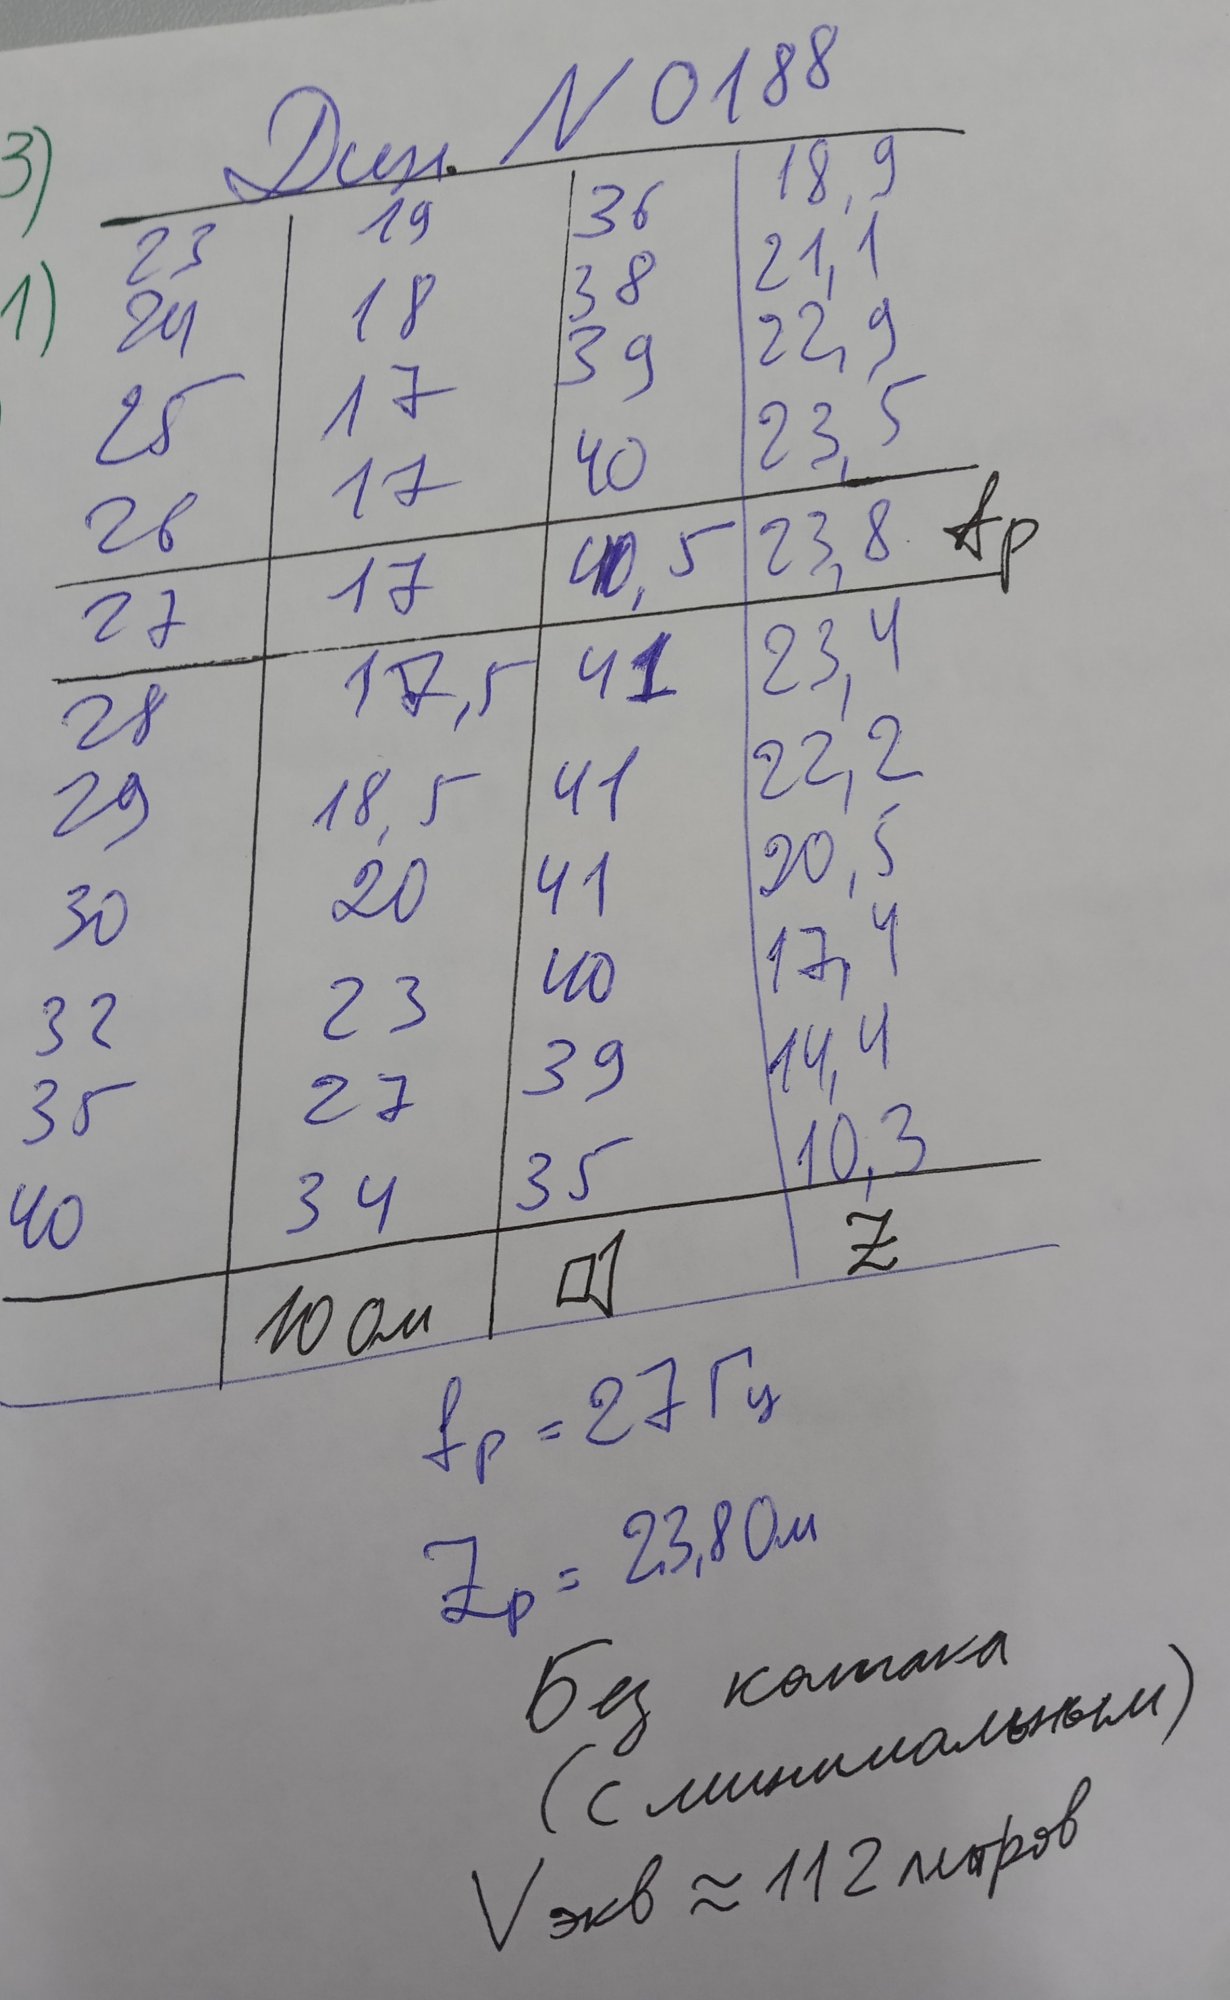 Дин. N 0188
3)
23 19 36 18,9
1)
24 18 38 21,1
25 17 39 22,9
26 17 40 23,5
27 17 40,5 23,8 fр
28 17,5 41 23,4
29 18,5 41 22,2
30 20 41 20,5
32 23 40 17,4
35 27 39 14,4
40 34 35 10,3
10 Ом Z
fр = 27 Гц
Zр = 23,8 Ом
Без колпака
(с минимальным)
Vэкв ≈ 112 литров